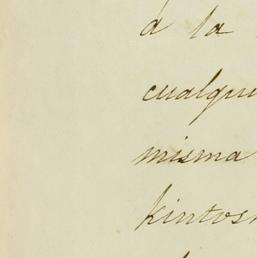 á la
cualqui
misma
kintos